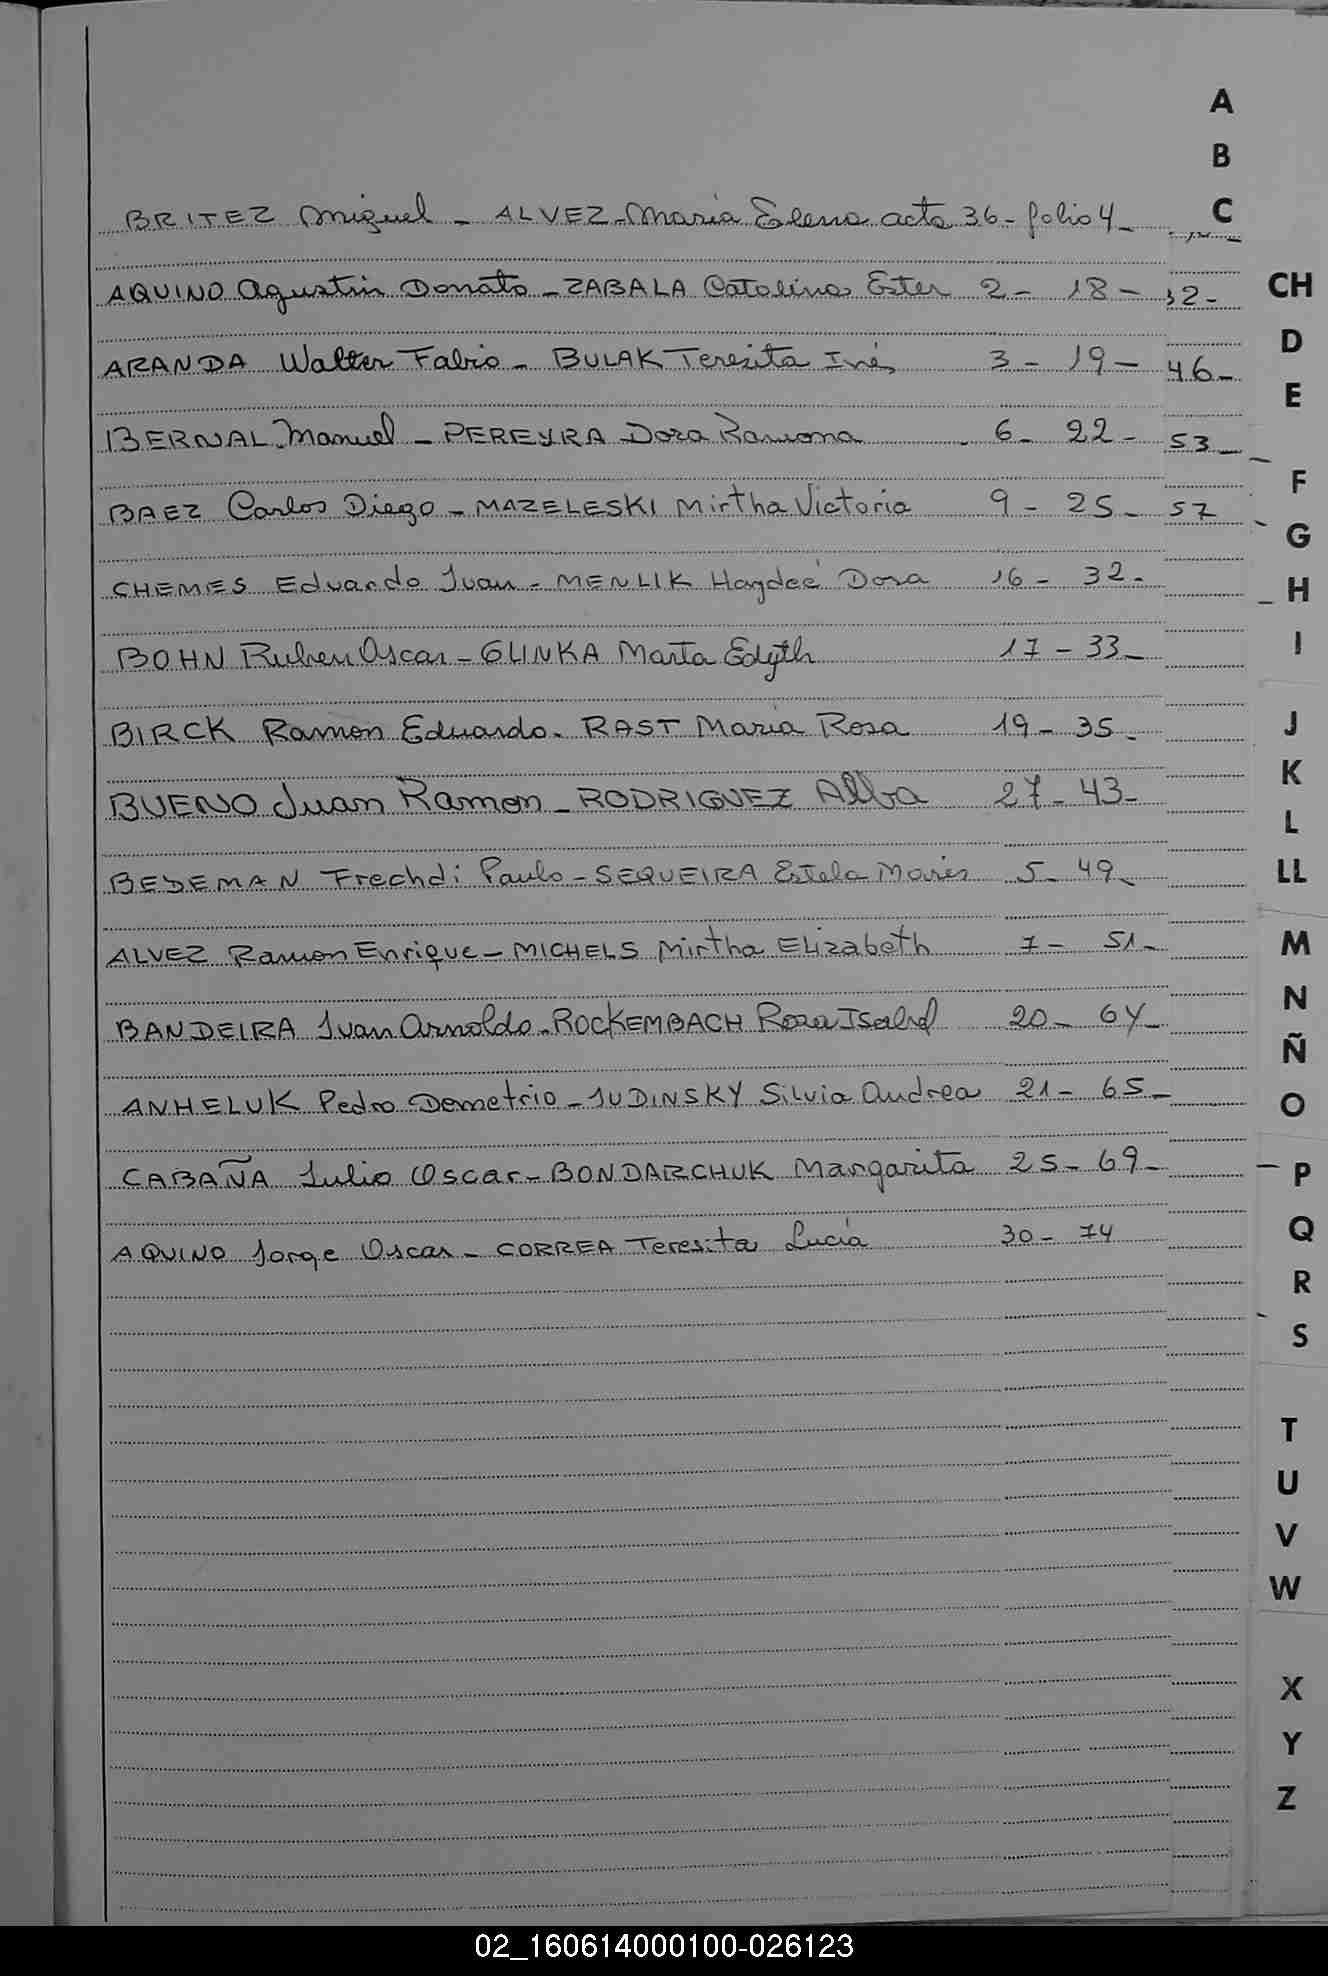 BRITEZ Miguel - ALVEZ - Maria Elena acta 36 - folio 4 -
AQUINO Agustin Donato - ZABALA Catalina Ester 2 - 18 - 32 -
ARANDA Walter Fabio - BULAK Teresita Inés 3 - 19 - 46 -
BERNAL Manuel - PEREYRA Dora Ramona - 6 - 22 - 53 -
BAEZ Carlos Diego - MAZELESKI Mirtha Victoria 9 - 25 - 57
CHEMES Eduardo Juan - MENLIK Haydeé Dora 16 - 32 -
BOHN Ruben Oscar - GLINKA Marta Edyth 17 - 33 -
BIRCK Ramon Eduardo - RAST Maria Rosa 19 - 35 -
BUENO Juan Ramon - RODRIGUEZ Alba 27 - 43 -
BEDEMAN Frechdi Paulo - SEQUEIRA Estela Maris 5 - 49 -
ALVEZ Ramon Enrique - MICHELS Mirtha Elizabeth 7 - 51 -
BANDEIRA Juan Arnoldo - ROCKEMBACH Rosa Isabel 20 - 64 -
ANHELUK Pedro Demetrio - JUDINSKY Silvia Andrea 21 - 65 -
CABAÑA Julio Oscar - BONDARCHUK Margarita 25 - 69 -
AQUINO Jorge Oscar - CORREA Teresita Lucía 30 - 74
A
B
C
CH
D
E
F
G
H
I
J
K
L
LL
M
N
Ñ
O
P
Q
R
S
T
U
V
W
X
Y
Z
02_160614000100-026123